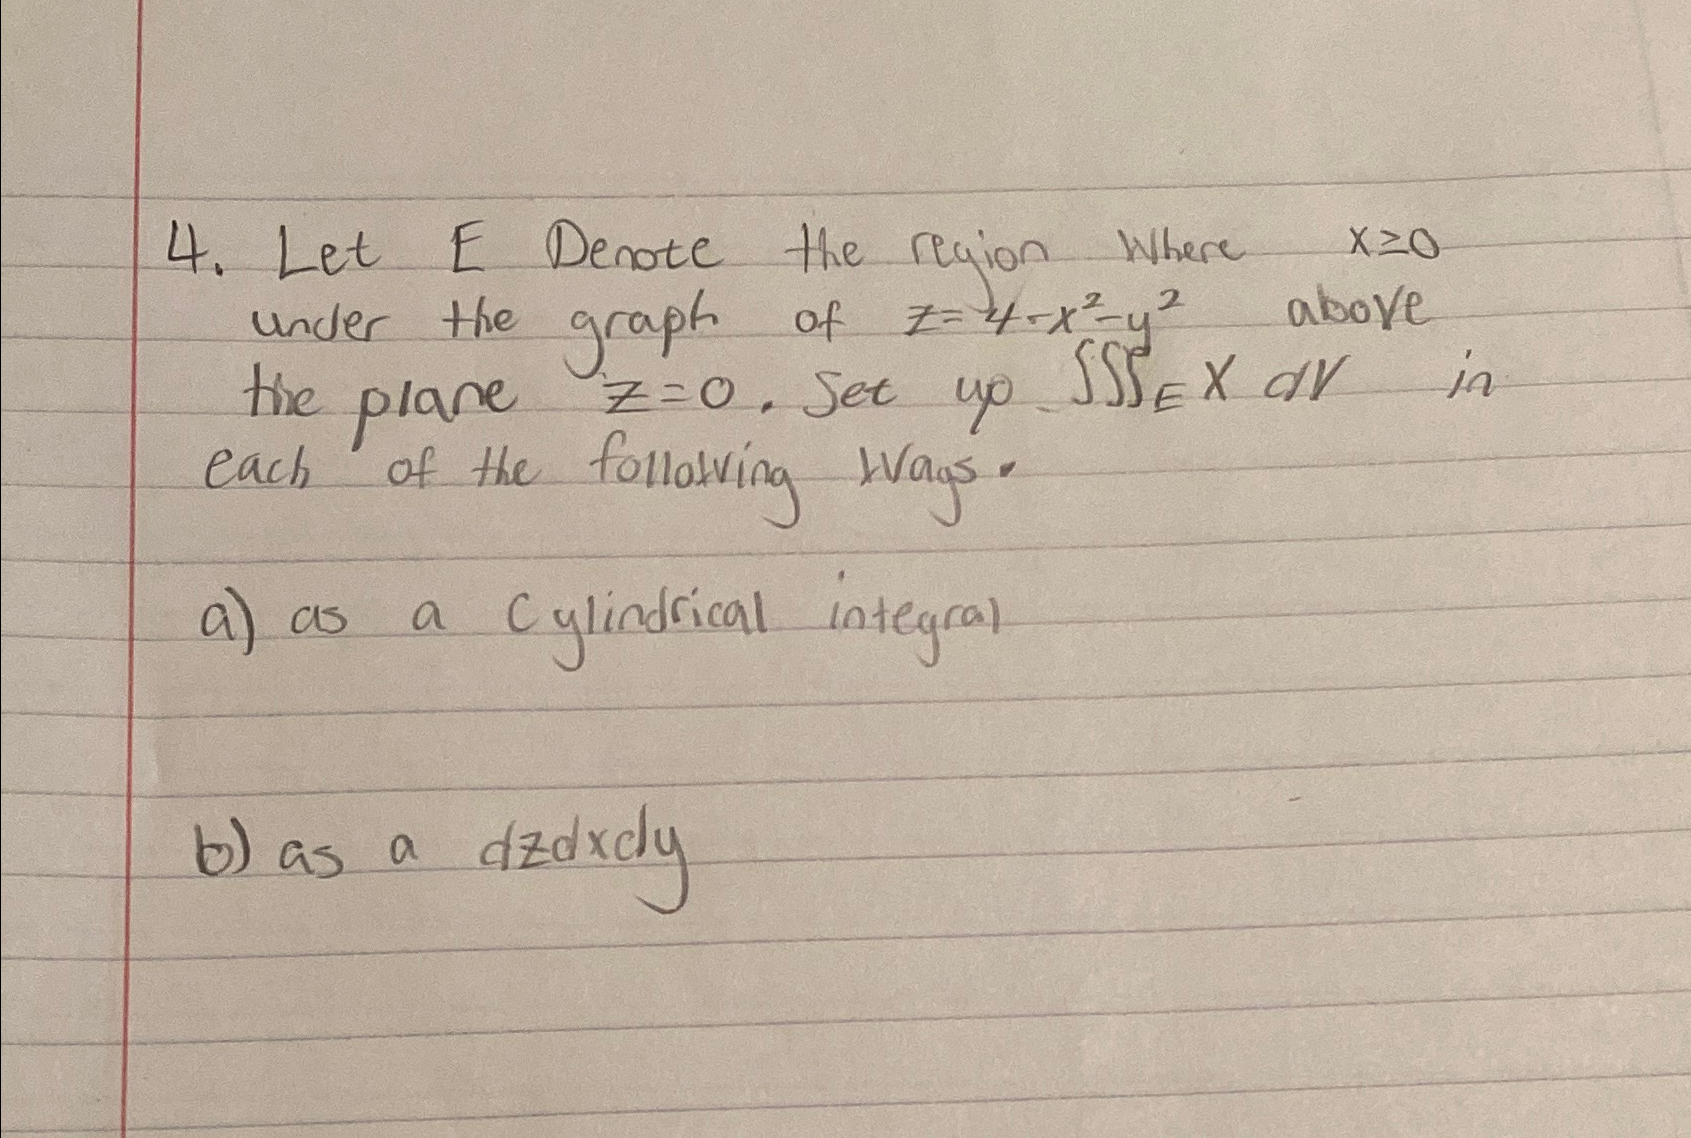 4. Let E Denote the region Where x≥0
under the graph of z=4-x²-y² above
the plane z=0. Set up ∭_E X dV in
each of the following Ways.
a) as a Cylindrical integral
b) as a dzdxdy